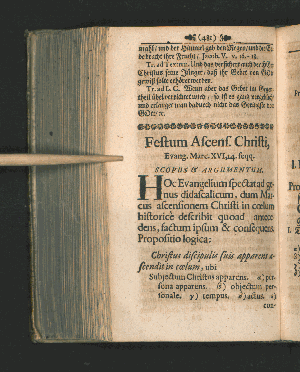 (481)
mahl/ und der Himmel gab den Regen/ und die Er-
de bracht ihre Frucht, Jacob. V. v. 16.-18.
Tr. ad Textum. Und das versichert auch der HErr
Christus seine Jünger/ daß ihr Gebet von GOtt
gewiß solte erhöret werden.
Tr. ad L. C. Wenn aber das Gebet im Gegen-
theil übel verrichtet wird / so ist es gantz
und erlanget man dadurch nicht das Geringste von
GOtt/ rc.
Festum Ascens. Christi,
Evang. Marc. XVI, 14. seqq.
SCOPUS & ARGUMENTUM.
HOc Evangelium spectat ad ge-
nus didascalicum, dum Mar-
cus ascensionem Christi in cœlum
historicè describit quoad antece-
dens, factum ipsum & consequens.
Propositio logica:
Christus discipulis suis apparens a-
scendit in cœlum, ubi
Subjectum Christus apparens. α) per-
sona apparens. β) objectum per-
sonale. γ) tempus. δ) actus. ε)
con-